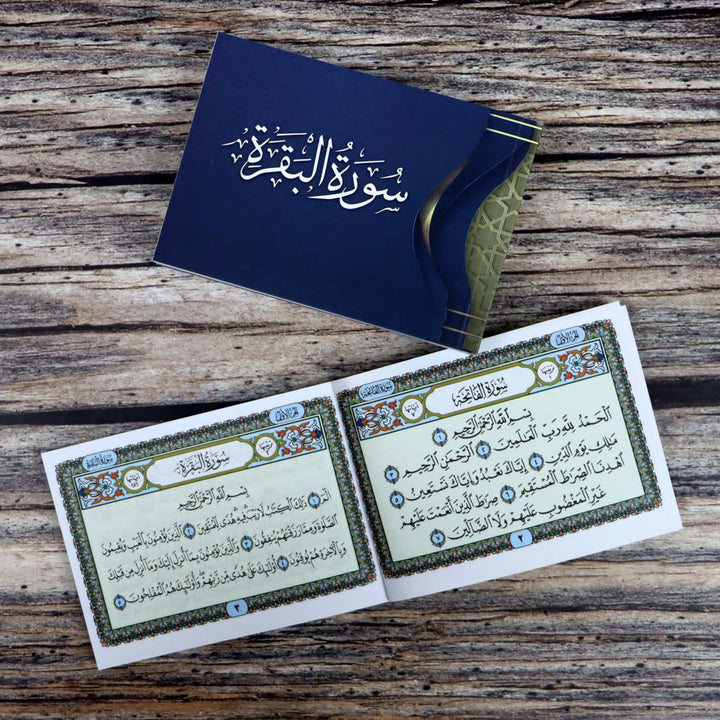 سُورَةُ البَقَرَةِ
الجزء الأول
سورة الفاتحة
سُورَةُ الفَاتِحَةِ
بِسْمِ ٱللَّهِ ٱلرَّحْمَٰنِ ٱلرَّحِيمِ ١
ٱلْحَمْدُ لِلَّهِ رَبِّ ٱلْعَٰلَمِينَ ٢ ٱلرَّحْمَٰنِ ٱلرَّحِيمِ ٣
مَٰلِكِ يَوْمِ ٱلدِّينِ ٤ إِيَّاكَ نَعْبُدُ وَإِيَّاكَ نَسْتَعِينُ ٥
ٱهْدِنَا ٱلصِّرَٰطَ ٱلْمُسْتَقِيمَ ٦ صِرَٰطَ ٱلَّذِينَ أَنْعَمْتَ عَلَيْهِمْ
غَيْرِ ٱلْمَغْضُوبِ عَلَيْهِمْ وَلَا ٱلضَّآلِّينَ ٧
٢
الجزء الأول
سورة البقرة
سُورَةُ البَقَرَةِ
بِسْمِ ٱللَّهِ ٱلرَّحْمَٰنِ ٱلرَّحِيمِ
الٓمٓ ١ ذَٰلِكَ ٱلْكِتَٰبُ لَا رَيْبَ فِيهِ هُدًى لِّلْمُتَّقِينَ ٢ ٱلَّذِينَ يُؤْمِنُونَ بِٱلْغَيْبِ وَيُقِيمُونَ
ٱلصَّلَوٰةَ وَمِمَّا رَزَقْنَٰهُمْ يُنفِقُونَ ٣ وَٱلَّذِينَ يُؤْمِنُونَ بِمَآ أُنزِلَ إِلَيْكَ وَمَآ أُنزِلَ مِن قَبْلِكَ
وَبِٱلْءَاخِرَةِ هُمْ يُوقِنُونَ ٤ أُو۟لَٰٓئِكَ عَلَىٰ هُدًى مِّن رَّبِّهِمْ وَأُو۟لَٰٓئِكَ هُمُ ٱلْمُفْلِحُونَ ٥
٣